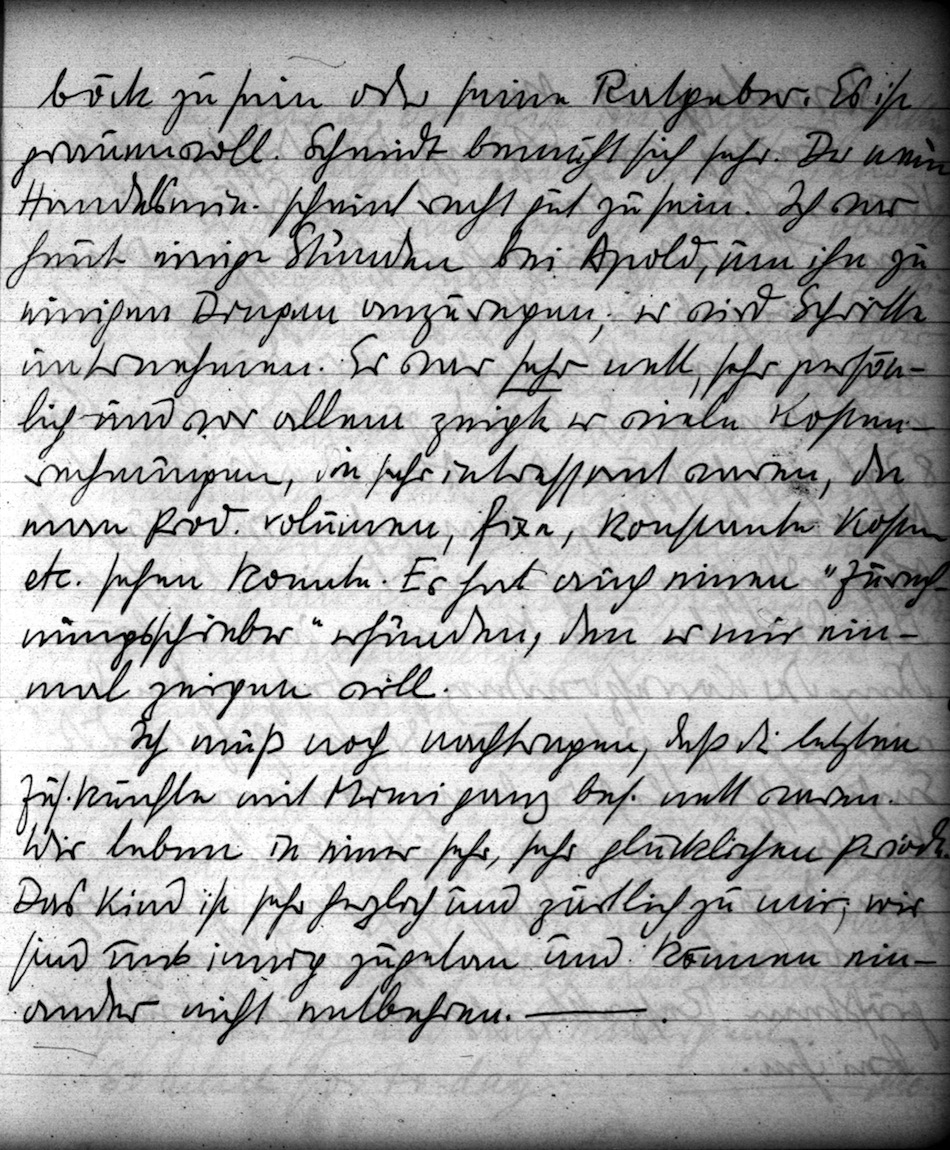 böck zu sein oder seine Ratgeber. Es ist
grauenvoll. Schmidt bemüht sich sehr. Der neue
Handelsmin. scheint recht gut zu sein. Ich war
heute einige Stunden bei Apold, um ihn zu
einigen Dingen anzuregen; er wird Schritte
unternehmen. Er war sehr nett, sehr persön-
lich und vor allem zeigte er viele Kosten-
rechnungen, die sehr interessant waren, da
man Prod. volumen, fixe, konstante Kosten
etc. sehen konnte. Er hat auch einen "Zurech-
nungsschieber" erfunden, den er mir ein-
mal zeigen will.
Ich muß noch nachtragen, daß die letzten
Zus.künfte mit Mormi ganz bes. nett waren.
Wir leben in einer sehr, sehr glücklichen Periode.
Das Kind ist sehr herzlich und zärtlich zu mir; wir
sind uns innig zugetan und können ein-
ander nicht entbehren. ——— .